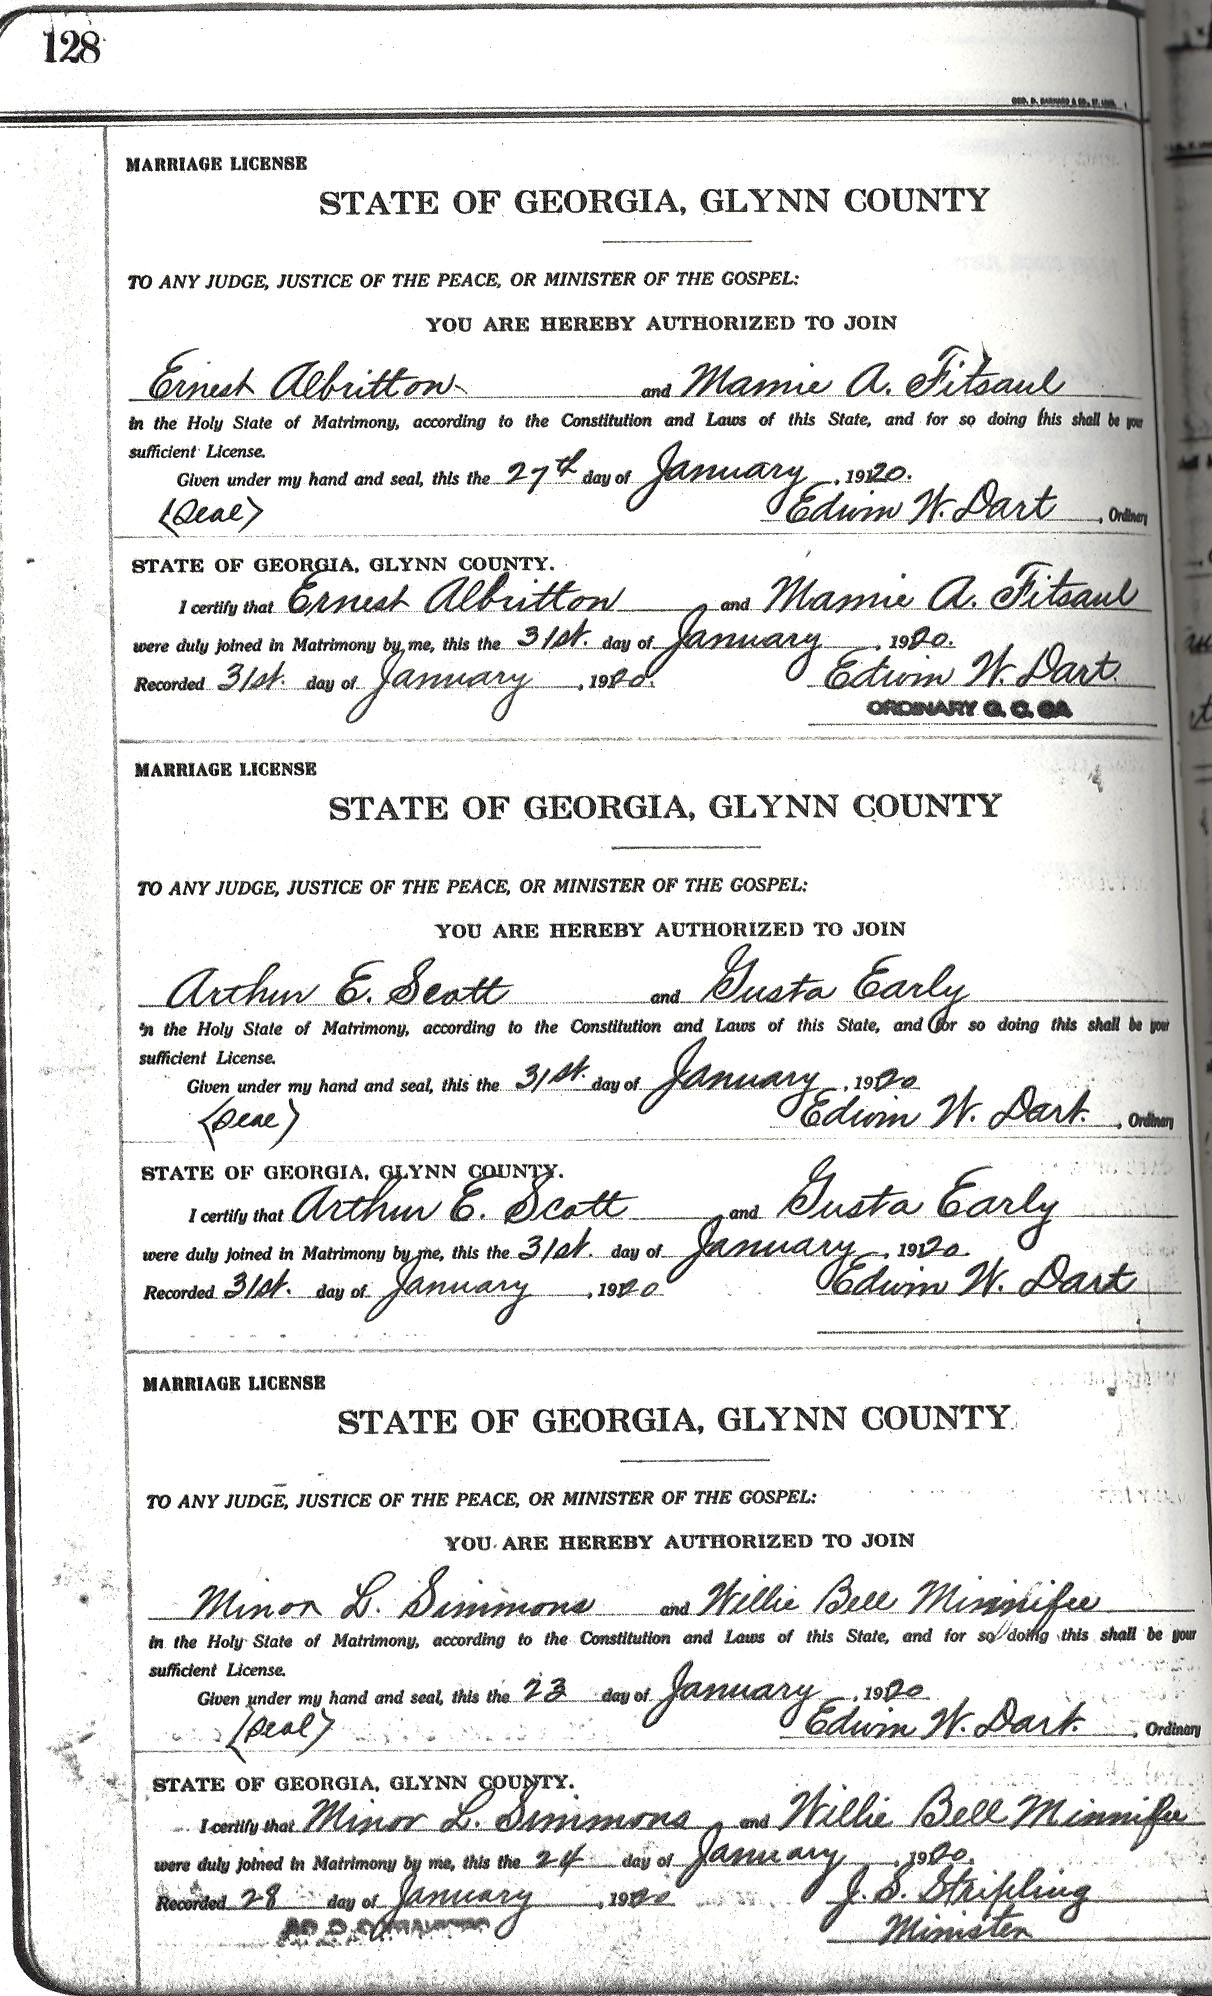 128
GEO. D. BARNARD & CO., ST. LOUIS.
MARRIAGE LICENSE
STATE OF GEORGIA, GLYNN COUNTY
TO ANY JUDGE, JUSTICE OF THE PEACE, OR MINISTER OF THE GOSPEL:
YOU ARE HEREBY AUTHORIZED TO JOIN
Ernest Albritton and Mamie A. Fitsaul
in the Holy State of Matrimony, according to the Constitution and Laws of this State, and for so doing this shall be your
sufficient License.
Given under my hand and seal, this the 27th day of January, 1920.
(Seal) Edwin W. Dart, Ordinary
STATE OF GEORGIA, GLYNN COUNTY.
I certify that Ernest Albritton and Mamie A. Fitsaul
were duly joined in Matrimony by me, this the 31st. day of January, 1920.
Recorded 31st. day of January, 1920. Edwin W. Dart.
ORDINARY G. C. GA
MARRIAGE LICENSE
STATE OF GEORGIA, GLYNN COUNTY
TO ANY JUDGE, JUSTICE OF THE PEACE, OR MINISTER OF THE GOSPEL:
YOU ARE HEREBY AUTHORIZED TO JOIN
Arthur E. Scott and Gusta Early
in the Holy State of Matrimony, according to the Constitution and Laws of this State, and for so doing this shall be your
sufficient License.
Given under my hand and seal, this the 31st. day of January, 1920
(Seal) Edwin W. Dart., Ordinary
STATE OF GEORGIA, GLYNN COUNTY.
I certify that Arthur E. Scott and Gusta Early
were duly joined in Matrimony by me, this the 31st. day of January, 1920.
Recorded 31st. day of January, 1920 Edwin W. Dart
MARRIAGE LICENSE
STATE OF GEORGIA, GLYNN COUNTY
TO ANY JUDGE, JUSTICE OF THE PEACE, OR MINISTER OF THE GOSPEL:
YOU ARE HEREBY AUTHORIZED TO JOIN
Minor L. Simmons and Willie Bell Minnifee
in the Holy State of Matrimony, according to the Constitution and Laws of this State, and for so doing this shall be your
sufficient License.
Given under my hand and seal, this the 23 day of January, 1920
(Seal) Edwin W. Dart., Ordinary
STATE OF GEORGIA, GLYNN COUNTY.
I certify that Minor L. Simmons and Willie Bell Minnifee
were duly joined in Matrimony by me, this the 24 day of January, 1920.
Recorded 28 day of January, 1920 J. S. Stripling
Minister